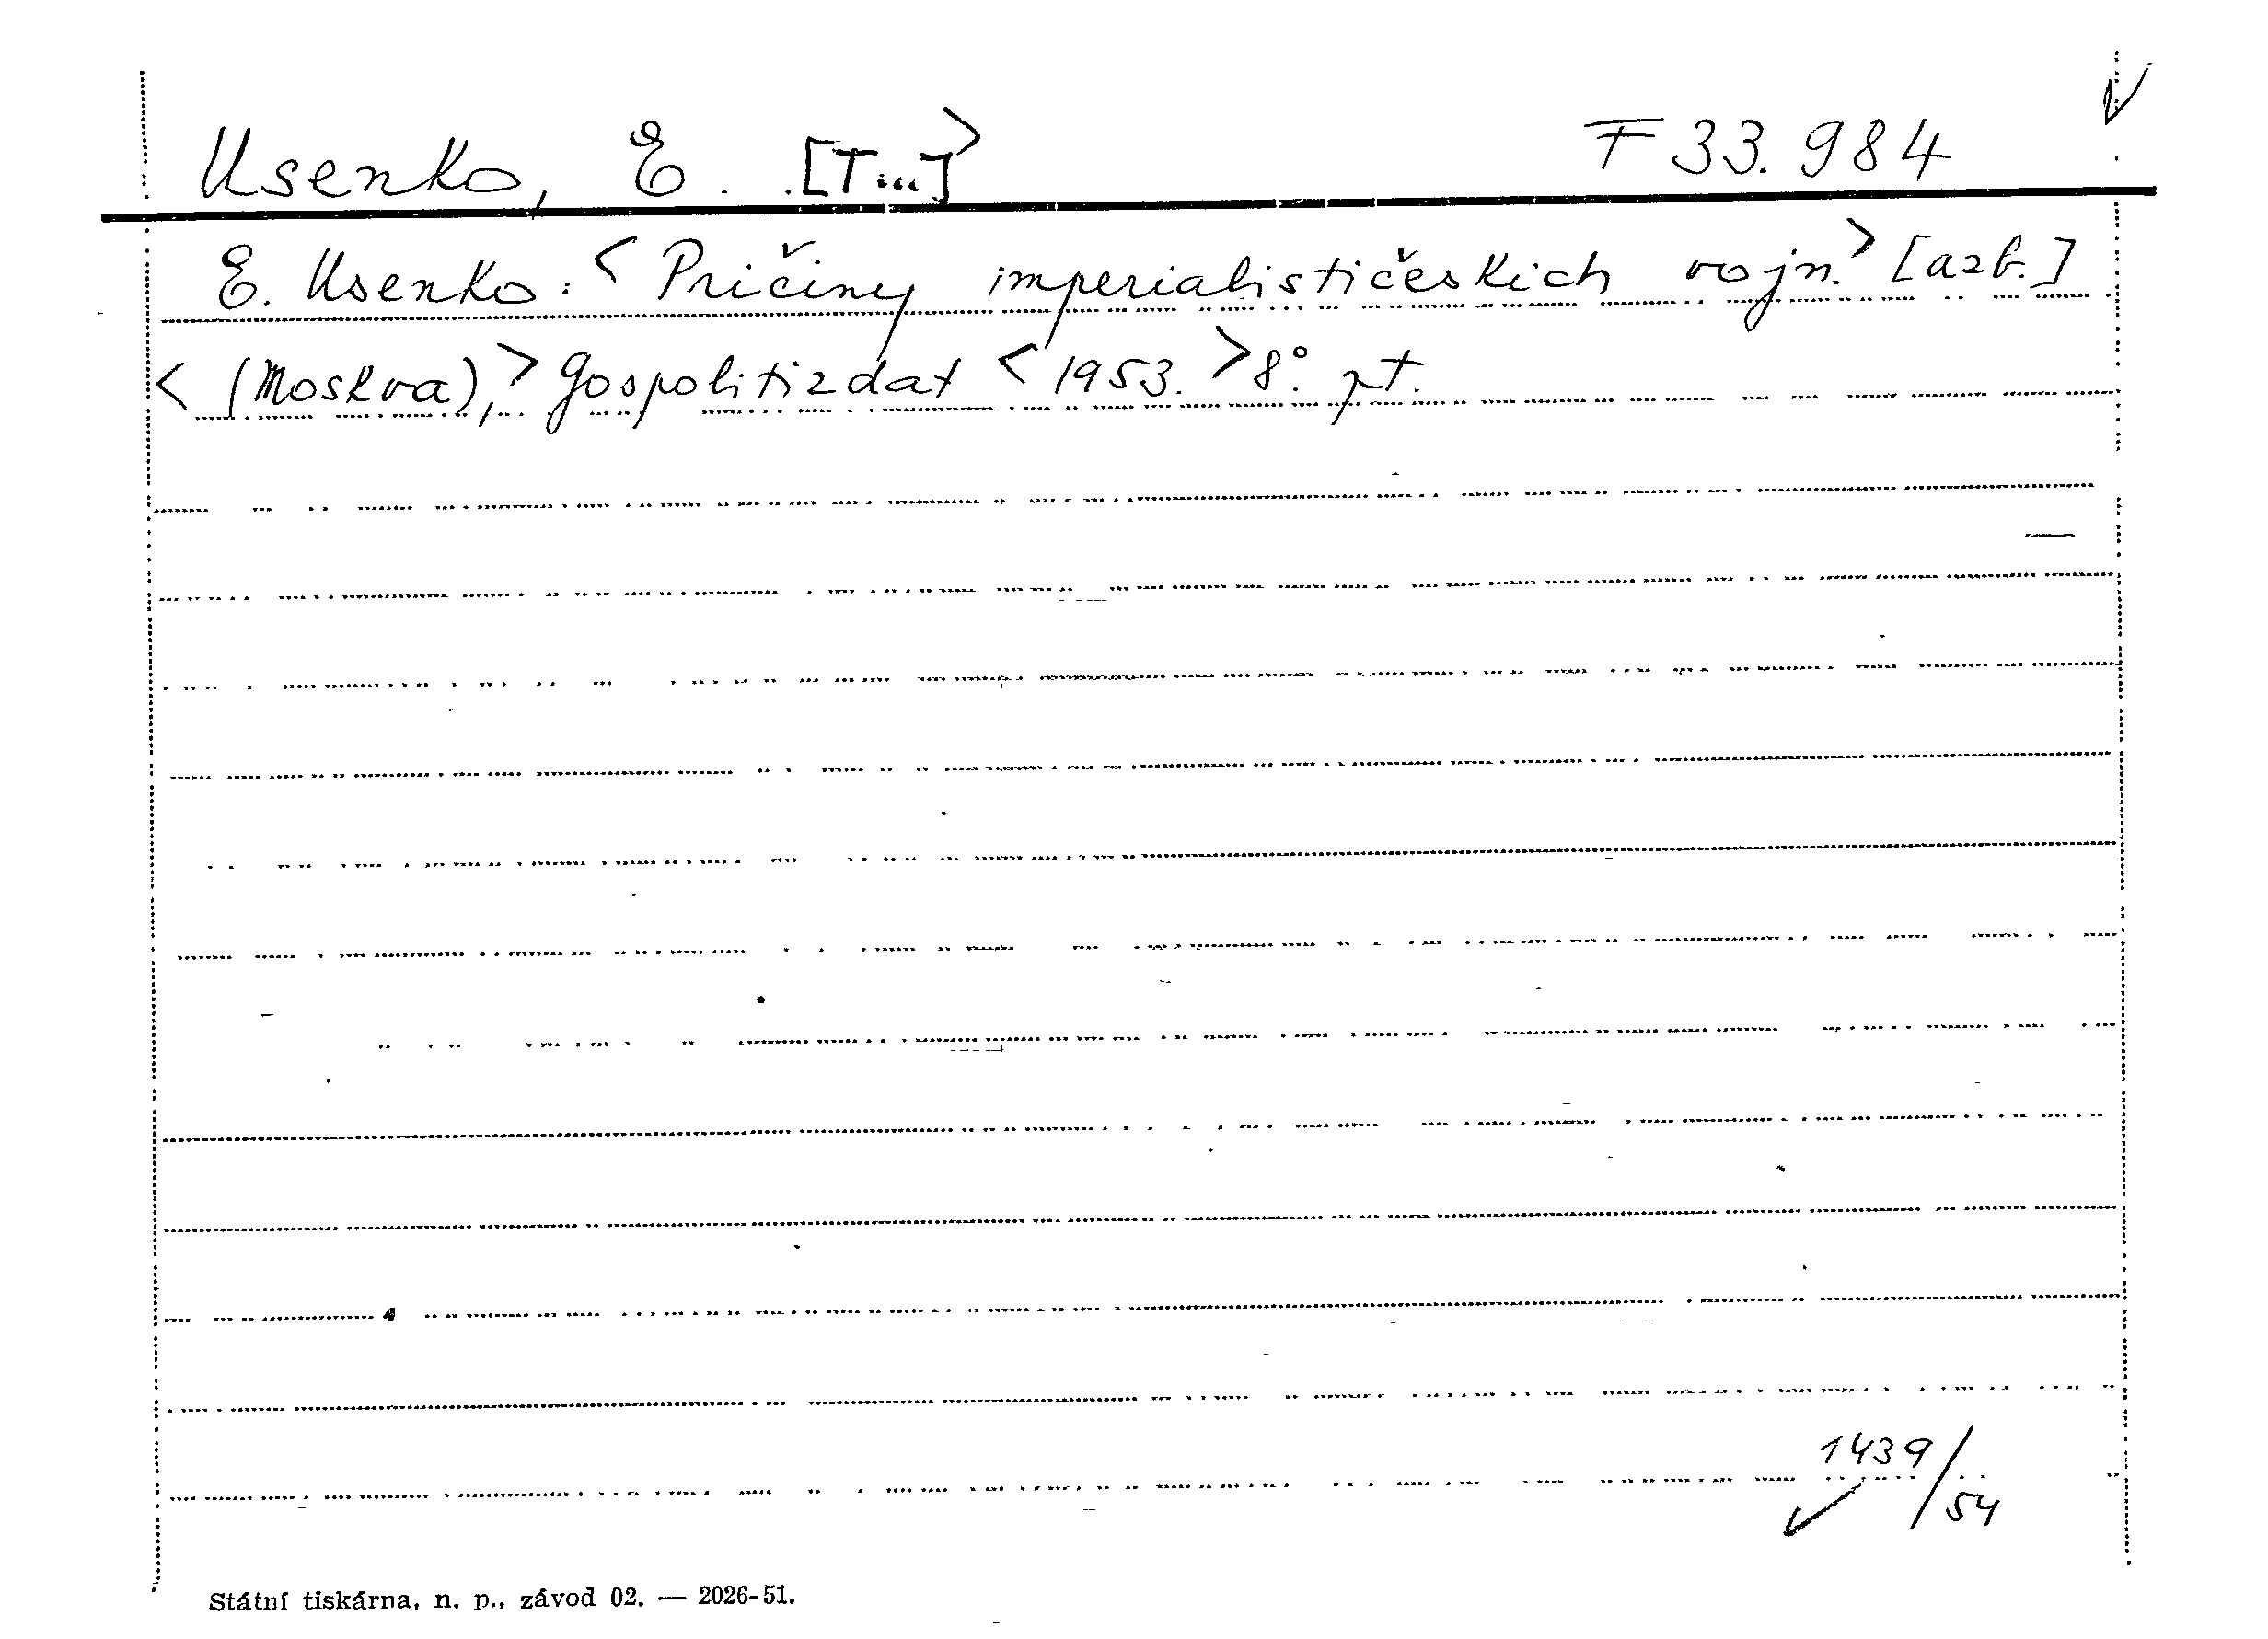 Usenko, E. [T...]> F 33.984
E. Usenko: <Pričiny imperialističeskich vojn.> [azb.]
<(Moskva),> Gospolitizdat <1953.> 8°. pt.
1439/54
Státní tiskárna, n. p., závod 02. — 2026-51.